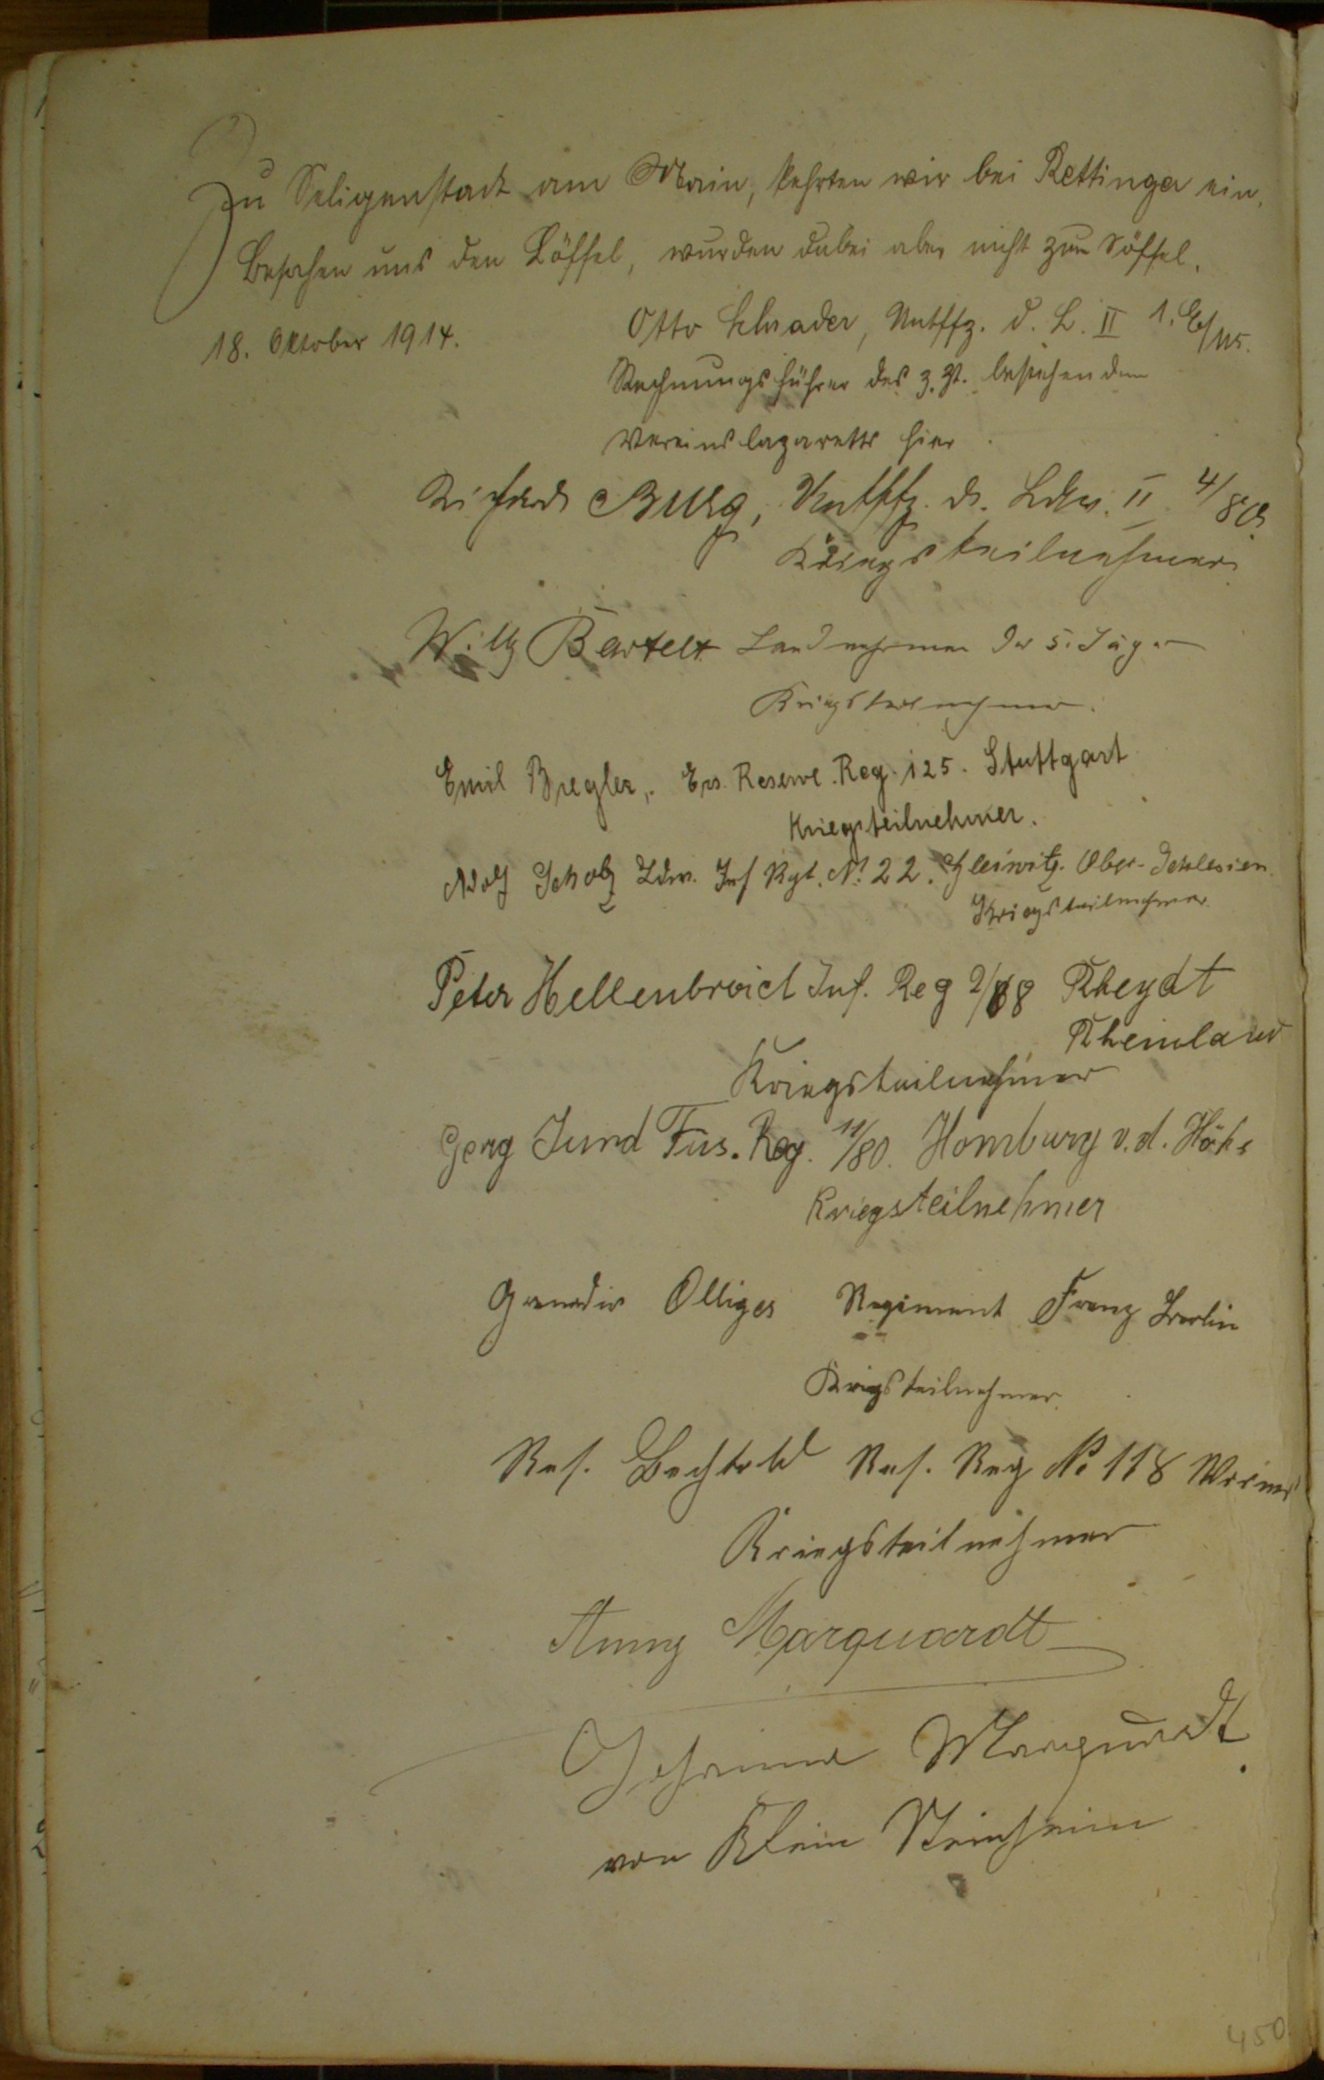 Zu Seligenstadt am Main, kehrten wir bei Rettinger ein,
Besahen uns den Löffel, wurden dabei aber nicht zum Söffel.
18. Oktober 1914.
Otto Schrader, Untffz. d. L. II 1. E/115.
Rechnungsführer des z. Zt. bestehenden
Vereinslazaretts hier.
Richard Burg, Untffz. d. Ldw. II 4/80.
Kriegsteilnehmer
Willy Bartelt Landwehrman der 5. Jäger
Kriegsteilnehmer.
Emil Bregler, Ers. Reserve. Reg. 125. Stuttgart
Kriegsteilnehmer.
Adolf Scholz Ldw. Inf Rgt. No. 22. Gleiwitz. Ober-Schlesien.
Kriegsteilnehmer
Peter Hellenbroich Inf. Reg 2/88 Rheydt
Rheinland
Kriegsteilnehmer
Georg Jund Füs. Reg. 11/80. Homburg v. d. Höhe
Kriegsteilnehmer
Grenadir Olliges Regiment Franz Berlin
Krigsteilnehmer.
Res. Bechtold Res. Reg No 118 Worms
Kriegsteilnehmer
Anny Marquardt
Johanna Marquardt.
von Klein Steinheim
450